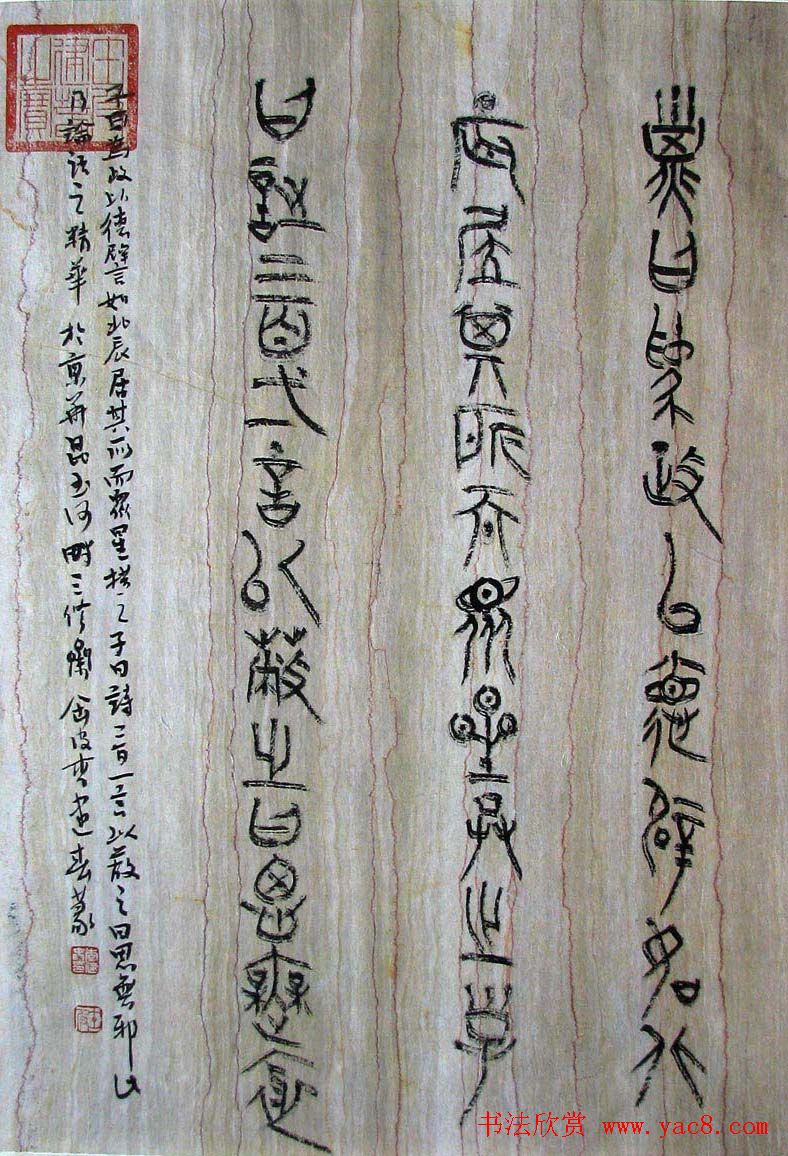 子曰為政以德辟如北
辰居其所而眾星共之子
曰詩三百弌言以蔽之曰思無邪
子曰為政以德譬如北辰居其所而眾星拱之子曰詩三百一言以蔽之曰思無邪此
乃論語之精華於京華昆玉河畔三篆
书法欣赏 www.yac8.com